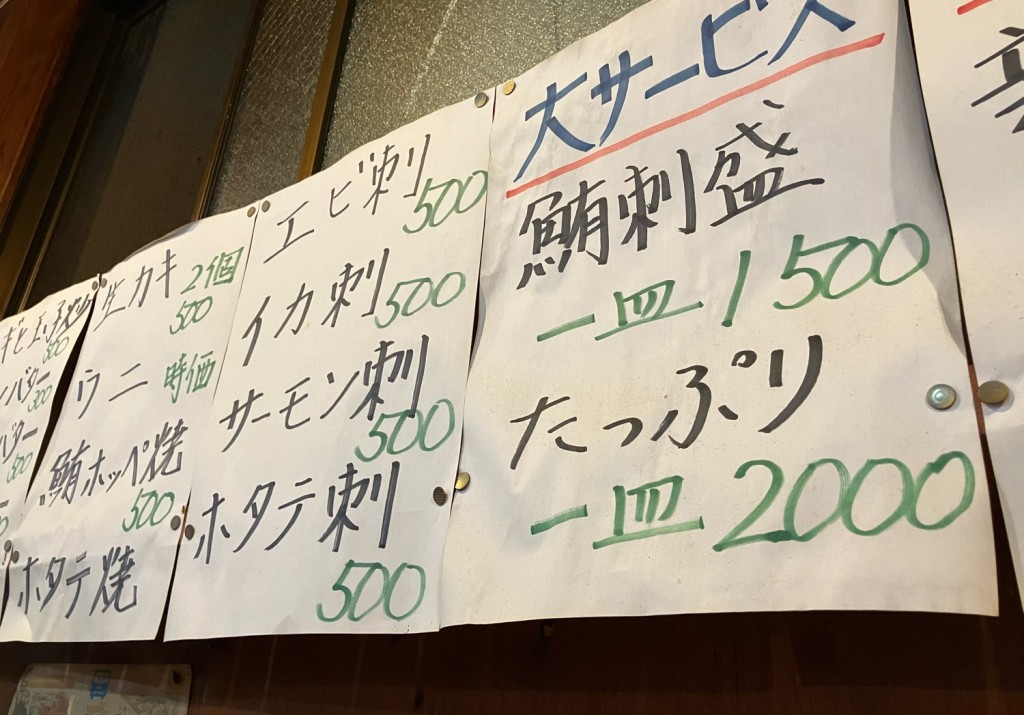 大サービス
鮪刺盛
一皿 1500
たっぷり
一皿 2000
エビ刺
500
イカ刺
500
サーモン刺
500
ホタテ刺
500
生カキ 2個
500
ウニ 時価
鮪ホッペ焼
500
ホタテ焼
500
バター
300
バター
500